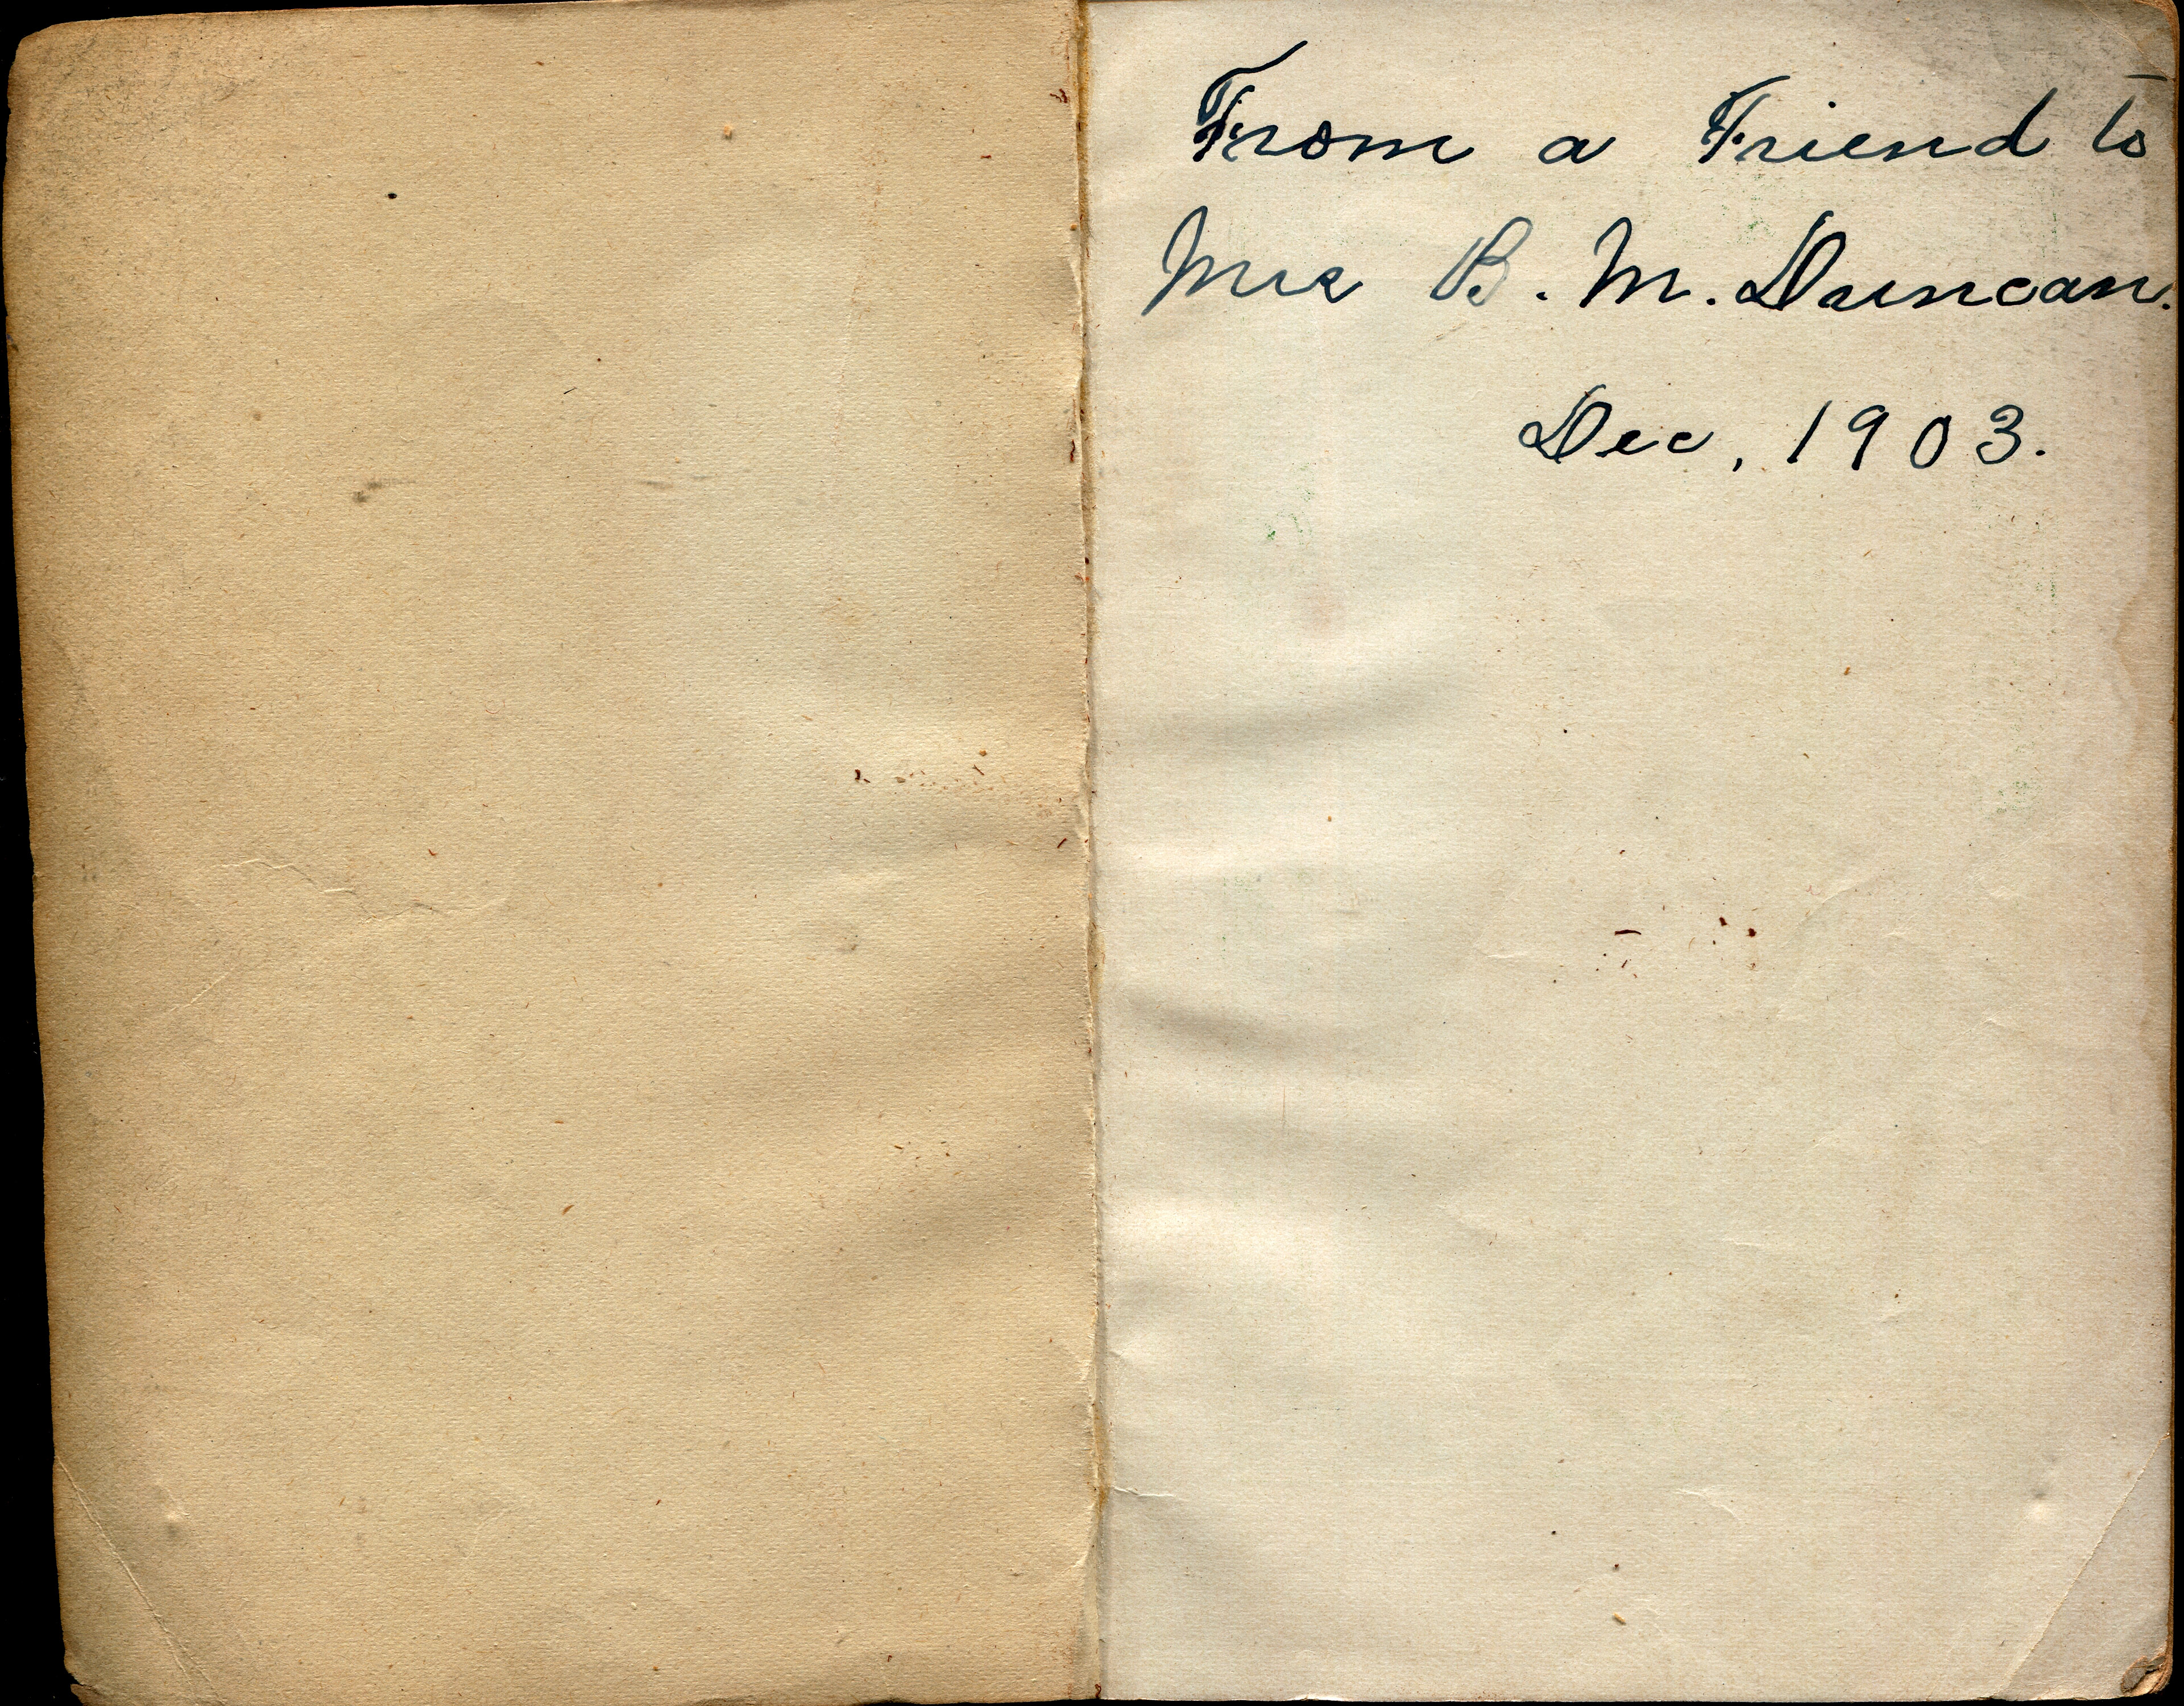 From a Friend to
Mrs B. M. Duncan.
Dec, 1903.